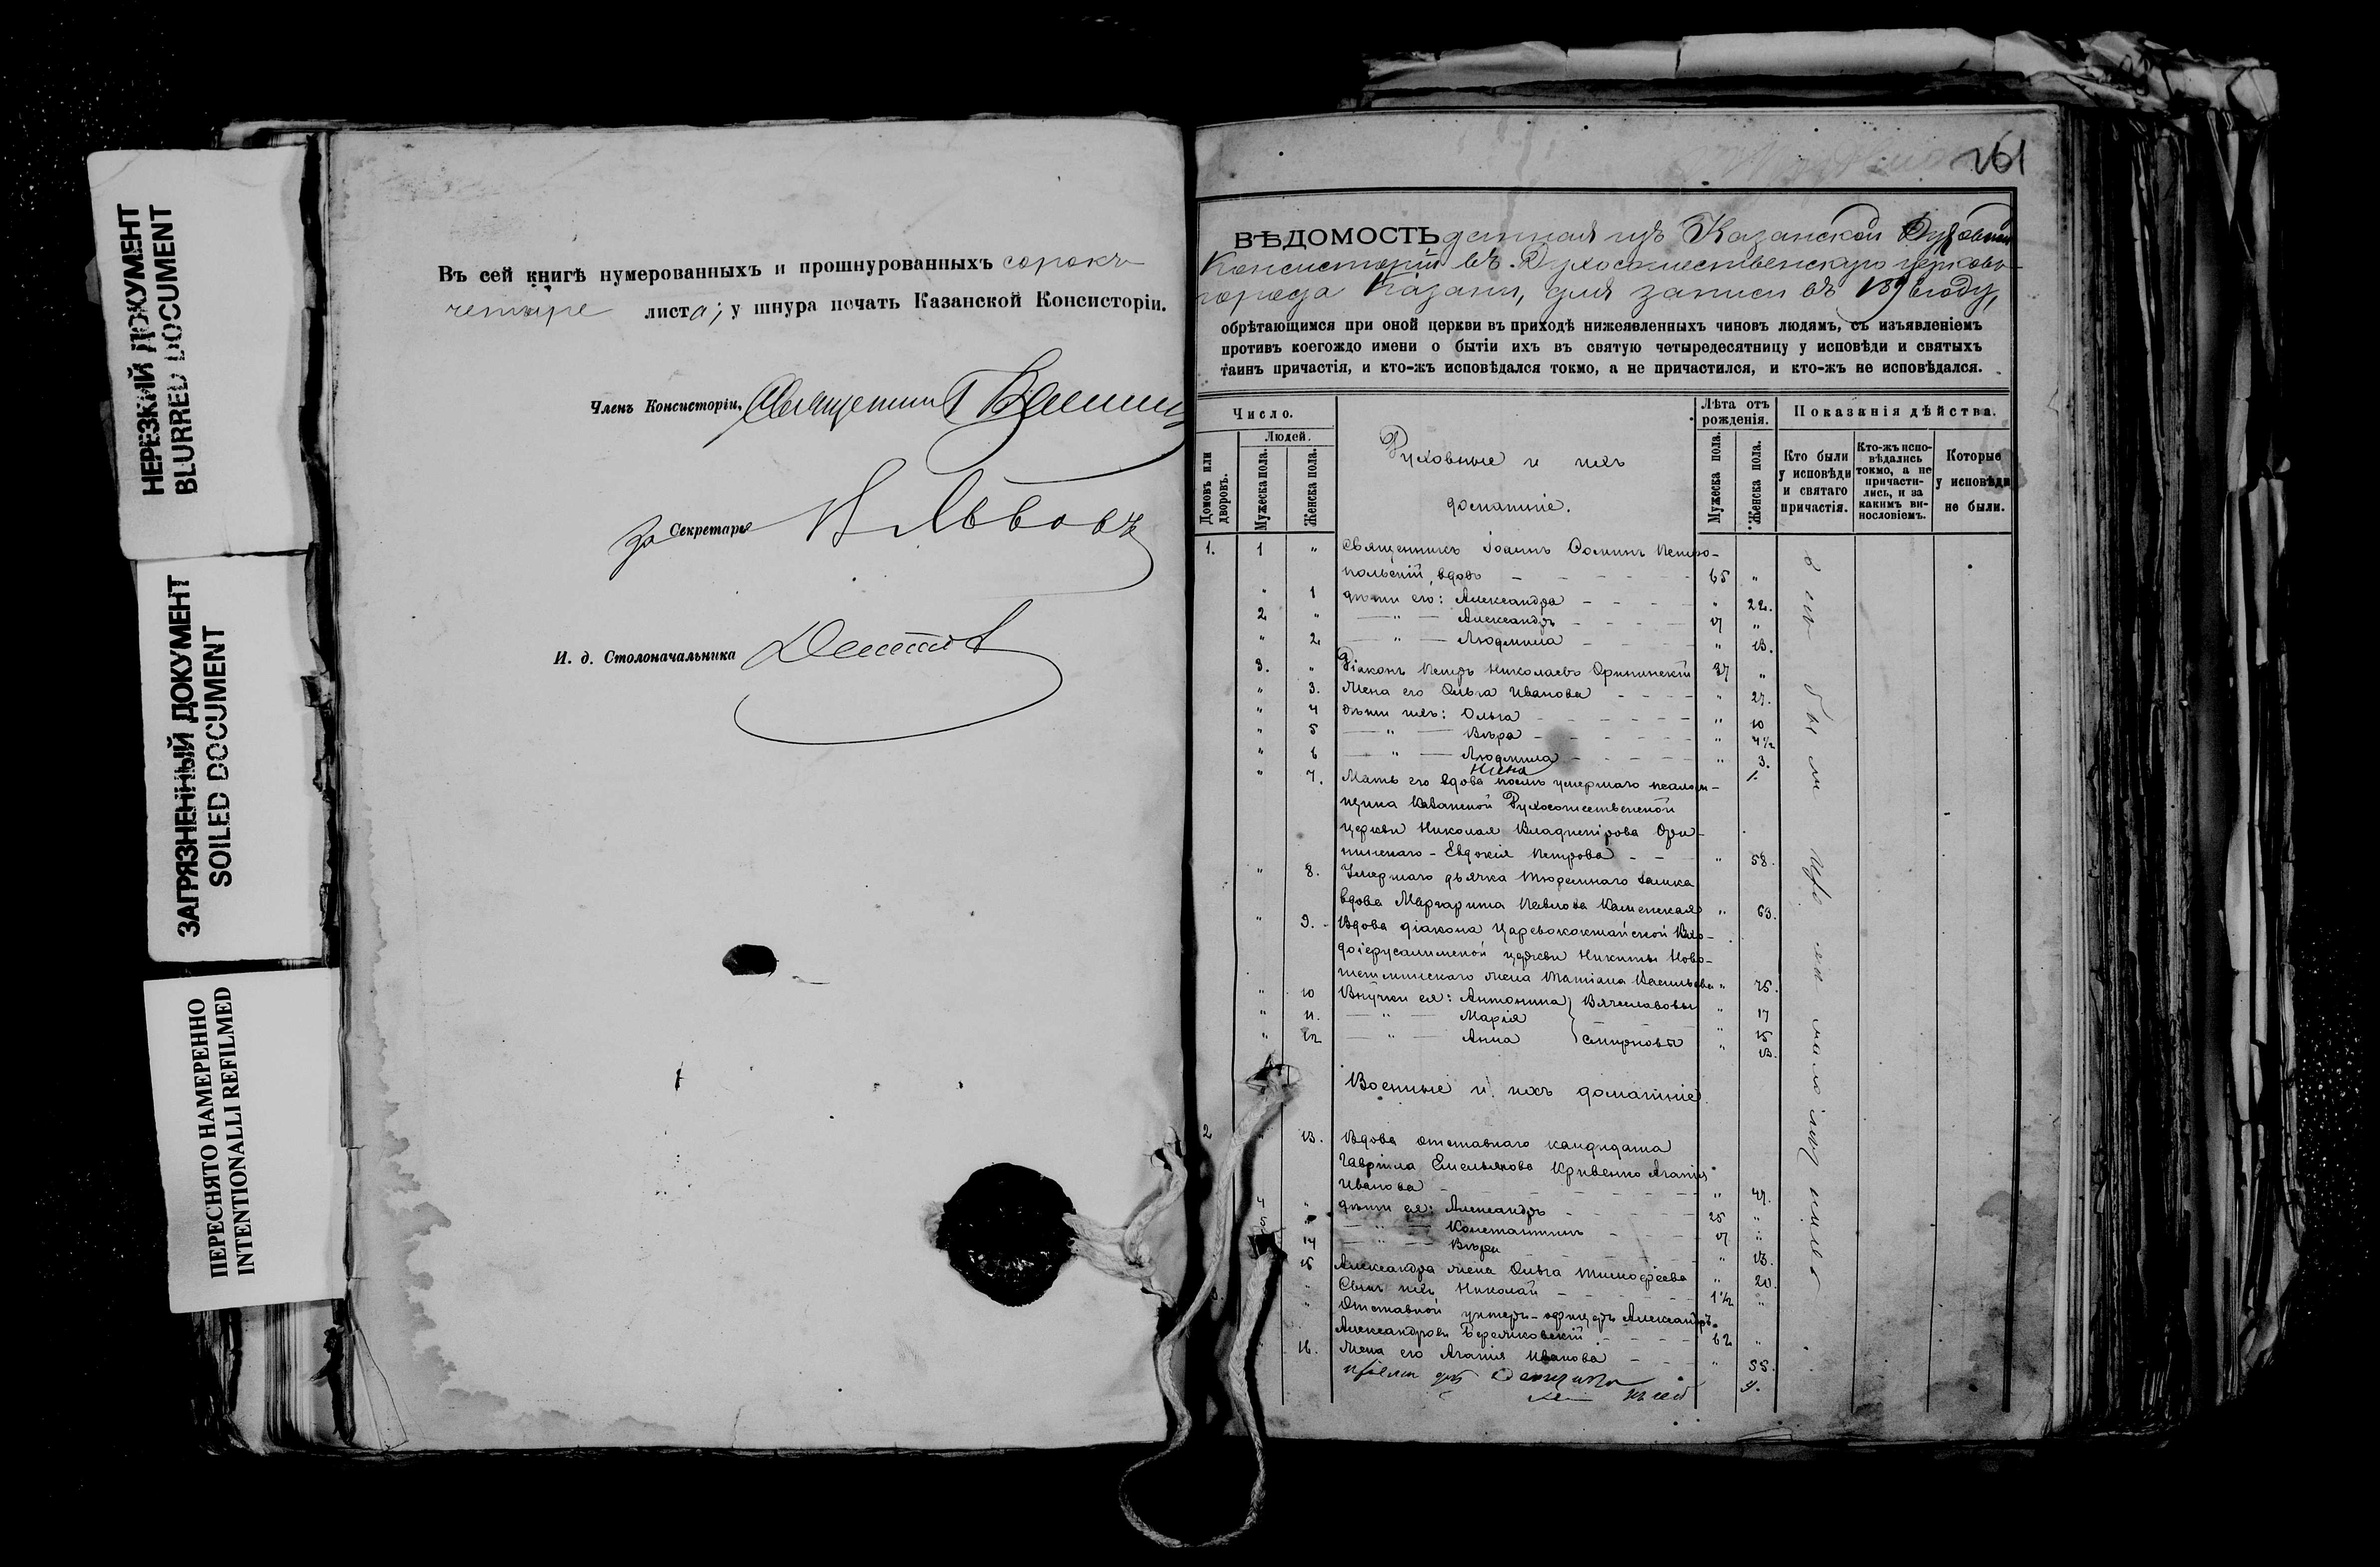 НЕРЕЗКИЙ ДОКУМЕНТ
BLURRED DOCUMENT
ЗАГРЯЗНЕННЫЙ ДОКУМЕНТ
SOILED DOCUMENT
ПЕРЕСНЯТО НАМЕРЕННО
INTENTIONALLI REFILMED
Въ сей книгѣ нумерованныхъ и прошнурованныхъ сорокъ
четыре листа; у шнура печать Казанской Консисторіи.
Членъ Консисторіи, Священникъ
за Секретаря Н Львовъ
И. д. Столоначальника
261
ВѢДОМОСТЬ данная изъ Казанской Духовной
Консисторіи въ Духосошественскую церковь
города Казани, для записи въ 189 году,
обрѣтающимся при оной церкви въ приходѣ нижеявленныхъ чиновъ людямъ, съ изъявленіемъ
противъ коегождо имени о бытіи ихъ въ святую четыредесятницу у исповѣди и святыхъ
таинъ причастія, и кто-жъ исповѣдался токмо, а не причастился, и кто-жъ не исповѣдался.
Число.
Людей.
Домовъ или дворовъ.
Мужеска пола.
Женска пола.
Духовные и ихъ
домашніе.
Лѣта отъ рожденія.
Мужеска пола.
Женска пола.
Показанія дѣйства.
Кто были у исповѣди и святаго причастія.
Кто-жъ исповѣдались токмо, а не причастились, и за какимъ винословіемъ.
Которые у исповѣди не были.
1. 1 " Священникъ Іоаннъ Ѳоминъ Петро-
польскій, вдовъ 65 "
" 1 дѣти его: Александра " 22.
2 " — " — Александръ 17 "
" 2 — " — Людмила " 13.
3. " Діаконъ Петръ Николаевъ Орининскій 37 "
" 3. Жена его Ольга Иванова " 27.
" 4 дѣти ихъ: Ольга " 10
" 5 — " — Вѣра " 4½
" 6 — " — Людмила " 3.
Нина 1.
" 7. Мать его вдова послѣ умершаго псалом-
щика Казанской Духосошественской
церкви Николая Владимірова Ори-
нинскаго - Евдокія Петрова " 58.
" 8. Умершаго дьячка Тюремнаго замка
вдова Маргарита Павлова Каменская " 63.
" 9. Вдова діакона Царевококшайской Вхо-
доіерусалимской церкви Никиты Ново-
жена Татіана Васильева " 75.
" 10 Внучки ея: Антонина Вячеславовы " 17
" 11. — " — Марія " 15
" 12 — " — Анна Смирновы " 13.
Военные и ихъ домашніе
2 " 13. Вдова отставнаго кандидата
Гавріила Емельянова Кривенко Агапія
Иванова " 47.
4 " дѣти ея: Александръ 25 "
5 " — " — Константинъ 17 "
" 14 — " — Вѣра " 13.
15 Александра жена Ольга Тимофеева " 20.
" Сынъ ихъ Николай 1½ "
3. " Отставной унтеръ-офицеръ Александръ
Александровъ 62 "
16. Жена его Агапія Иванова " 55.
9.
были